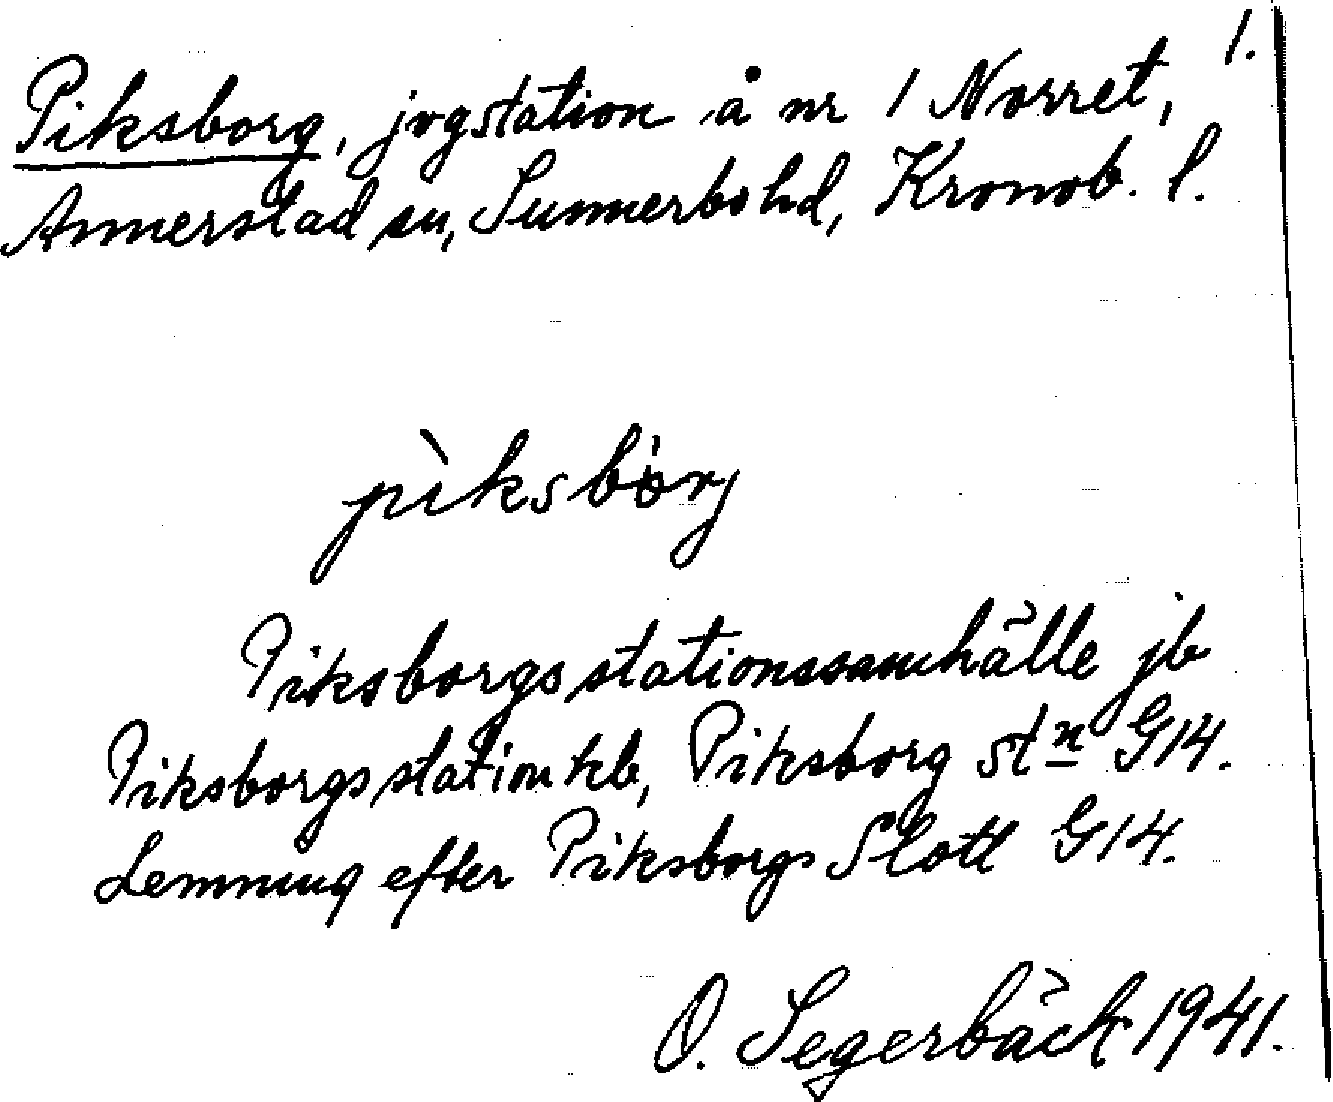 1.
Piksborg, jvgstation å nr 1 Norret,
Annerstad sn, Sunnerbo hd, Kronob. l.
pìksbo̍rj
Piksborgs stationssamhälle jb
Piksborgs station kb, Piksborg stn G14.
Lemning efter Piksborgs Slott G14.
O. Segerbäck 1941.